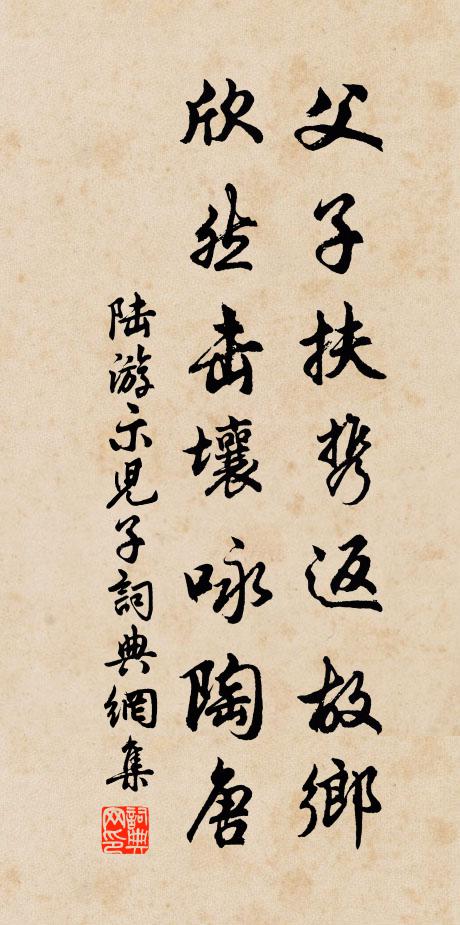 父子扶携返故鄉
欣然击壤咏陶唐
陆游示児子詞典網集
詞典
网印